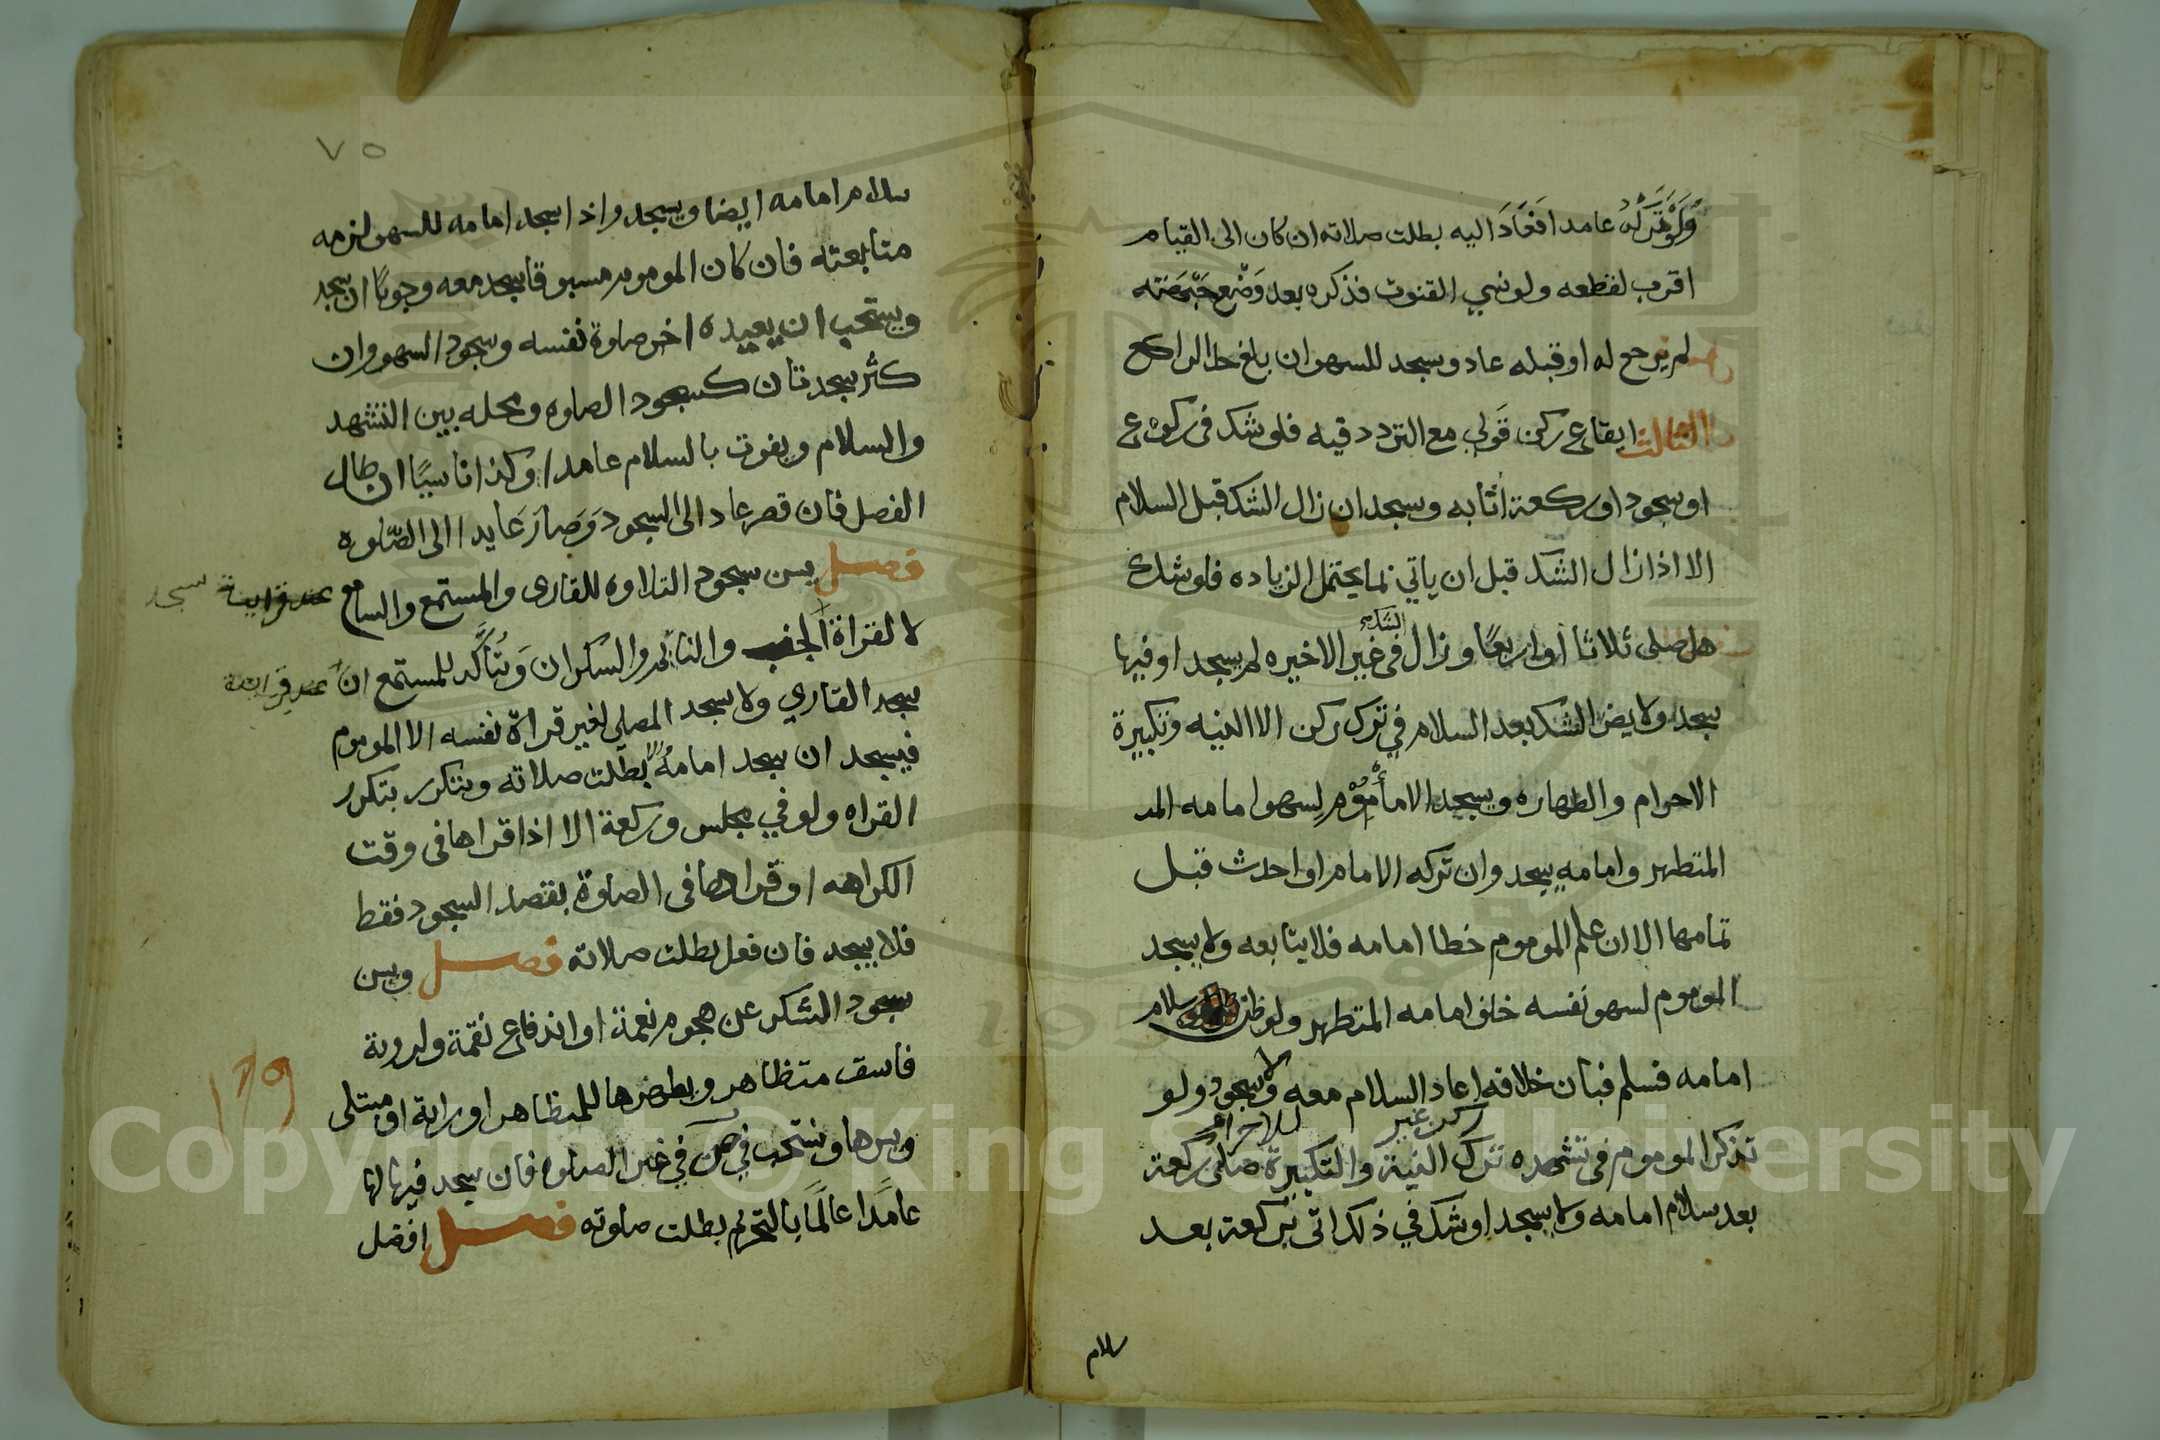 وَلَوْ تَرَكَهُ عامدا فَعَادَ اليه بطلت صلاته ان كان الى القيام
اقرب لقطعه ولو نسي القنوت فذكره بعد وَضْع جَبْهَته
لم يرجع له او قبله عاد وسجد للسهو ان بلغ حد الراكع
الثالث ايقاع ركن قَولي مع التردد فيه فلو شك في ركوع
او سجود او ركعة اتا به وسجد ان زال الشك قبل السلام
الا اذا زال الشك قبل ان ياتي بما يحتمل الزياده فلو شك
هل صلى ثلاثا أو اربعًا وزال الشك في غير الاخيره لم يسجد او فيها
سجد ولا يضر الشك بعد السلام في ترك ركن الا النيه وتكبيرة
الاحرام والطهاره ويسجد الامأمُوْمِ لِسهو امامه المد
المتطهر وامامه يسجد وان تركه الامام او احدث قبل
تمامها الا ان علم المموموم خطا امامه فلا يتابعه ولا يسجد
الموموم لسهو نفسه خلف امامه المتطهر ولو ظن سلام
امامه فسلم فبان خلافه اعاد السلام معه ولا سجود ولو
تذكر الموموم في تشهده ترك ركن غير النية والتكبيرة للاحرام صلى ركعة
بعد سلام امامه ولا يسجد او شك في ذلك اتى بركعة بعد
سلام
٧٥
سلام امامه ايضا ويسجد واذا سجد امامه للسهو لزمه
متابعته فان كان الموموم مسبوقا سجد معه وجوبًا ان سجد
ويستحب ان يعيده اخر صلوة نفسه وسجود السهو وان
كثر سجدتان كسجود الصلوه ومحله بين التشهد
والسلام ويفوت بالسلام عامدا وكذا ناسيًا ان طال
الفصل فان قصر عاد الى السجود وَصَارَ عَايدا الى الصّلوه
فصل يسن سجود التلاوه للقارى والمستمع والسامع عند قراية سجد
لا لقراة الجنب والنايم والسكران وَتُتَأكَّد للمستمع ان عند قراية
سجد القاري ولا سجد المصلي لغير قراة نفسه الا الموموم
فيسجد ان سجد امامهُ بطلت صلاته ويتكرر بتكرر
القراه ولو في مجلس وركعة الا اذا قراها في وقت
الكراهه او قراها في الصلوة بقصد السجود فقط
فلا يسجد فان فعل بطلت صلاته فصل ويسن
سجود الشكر عن هجوم نعمة او اندفاع نقمة ولروية
فاسق متظاهر ويظهرها للمتظاهر او راية او مبتلى
ويسرها ونستحب في ص في غير الصلوه فان سجد فيها لها
عامَدًا عالَمًا بالتحريم بطلت صلوته فصل افضل
١٦٩
Copyright © King Saud University